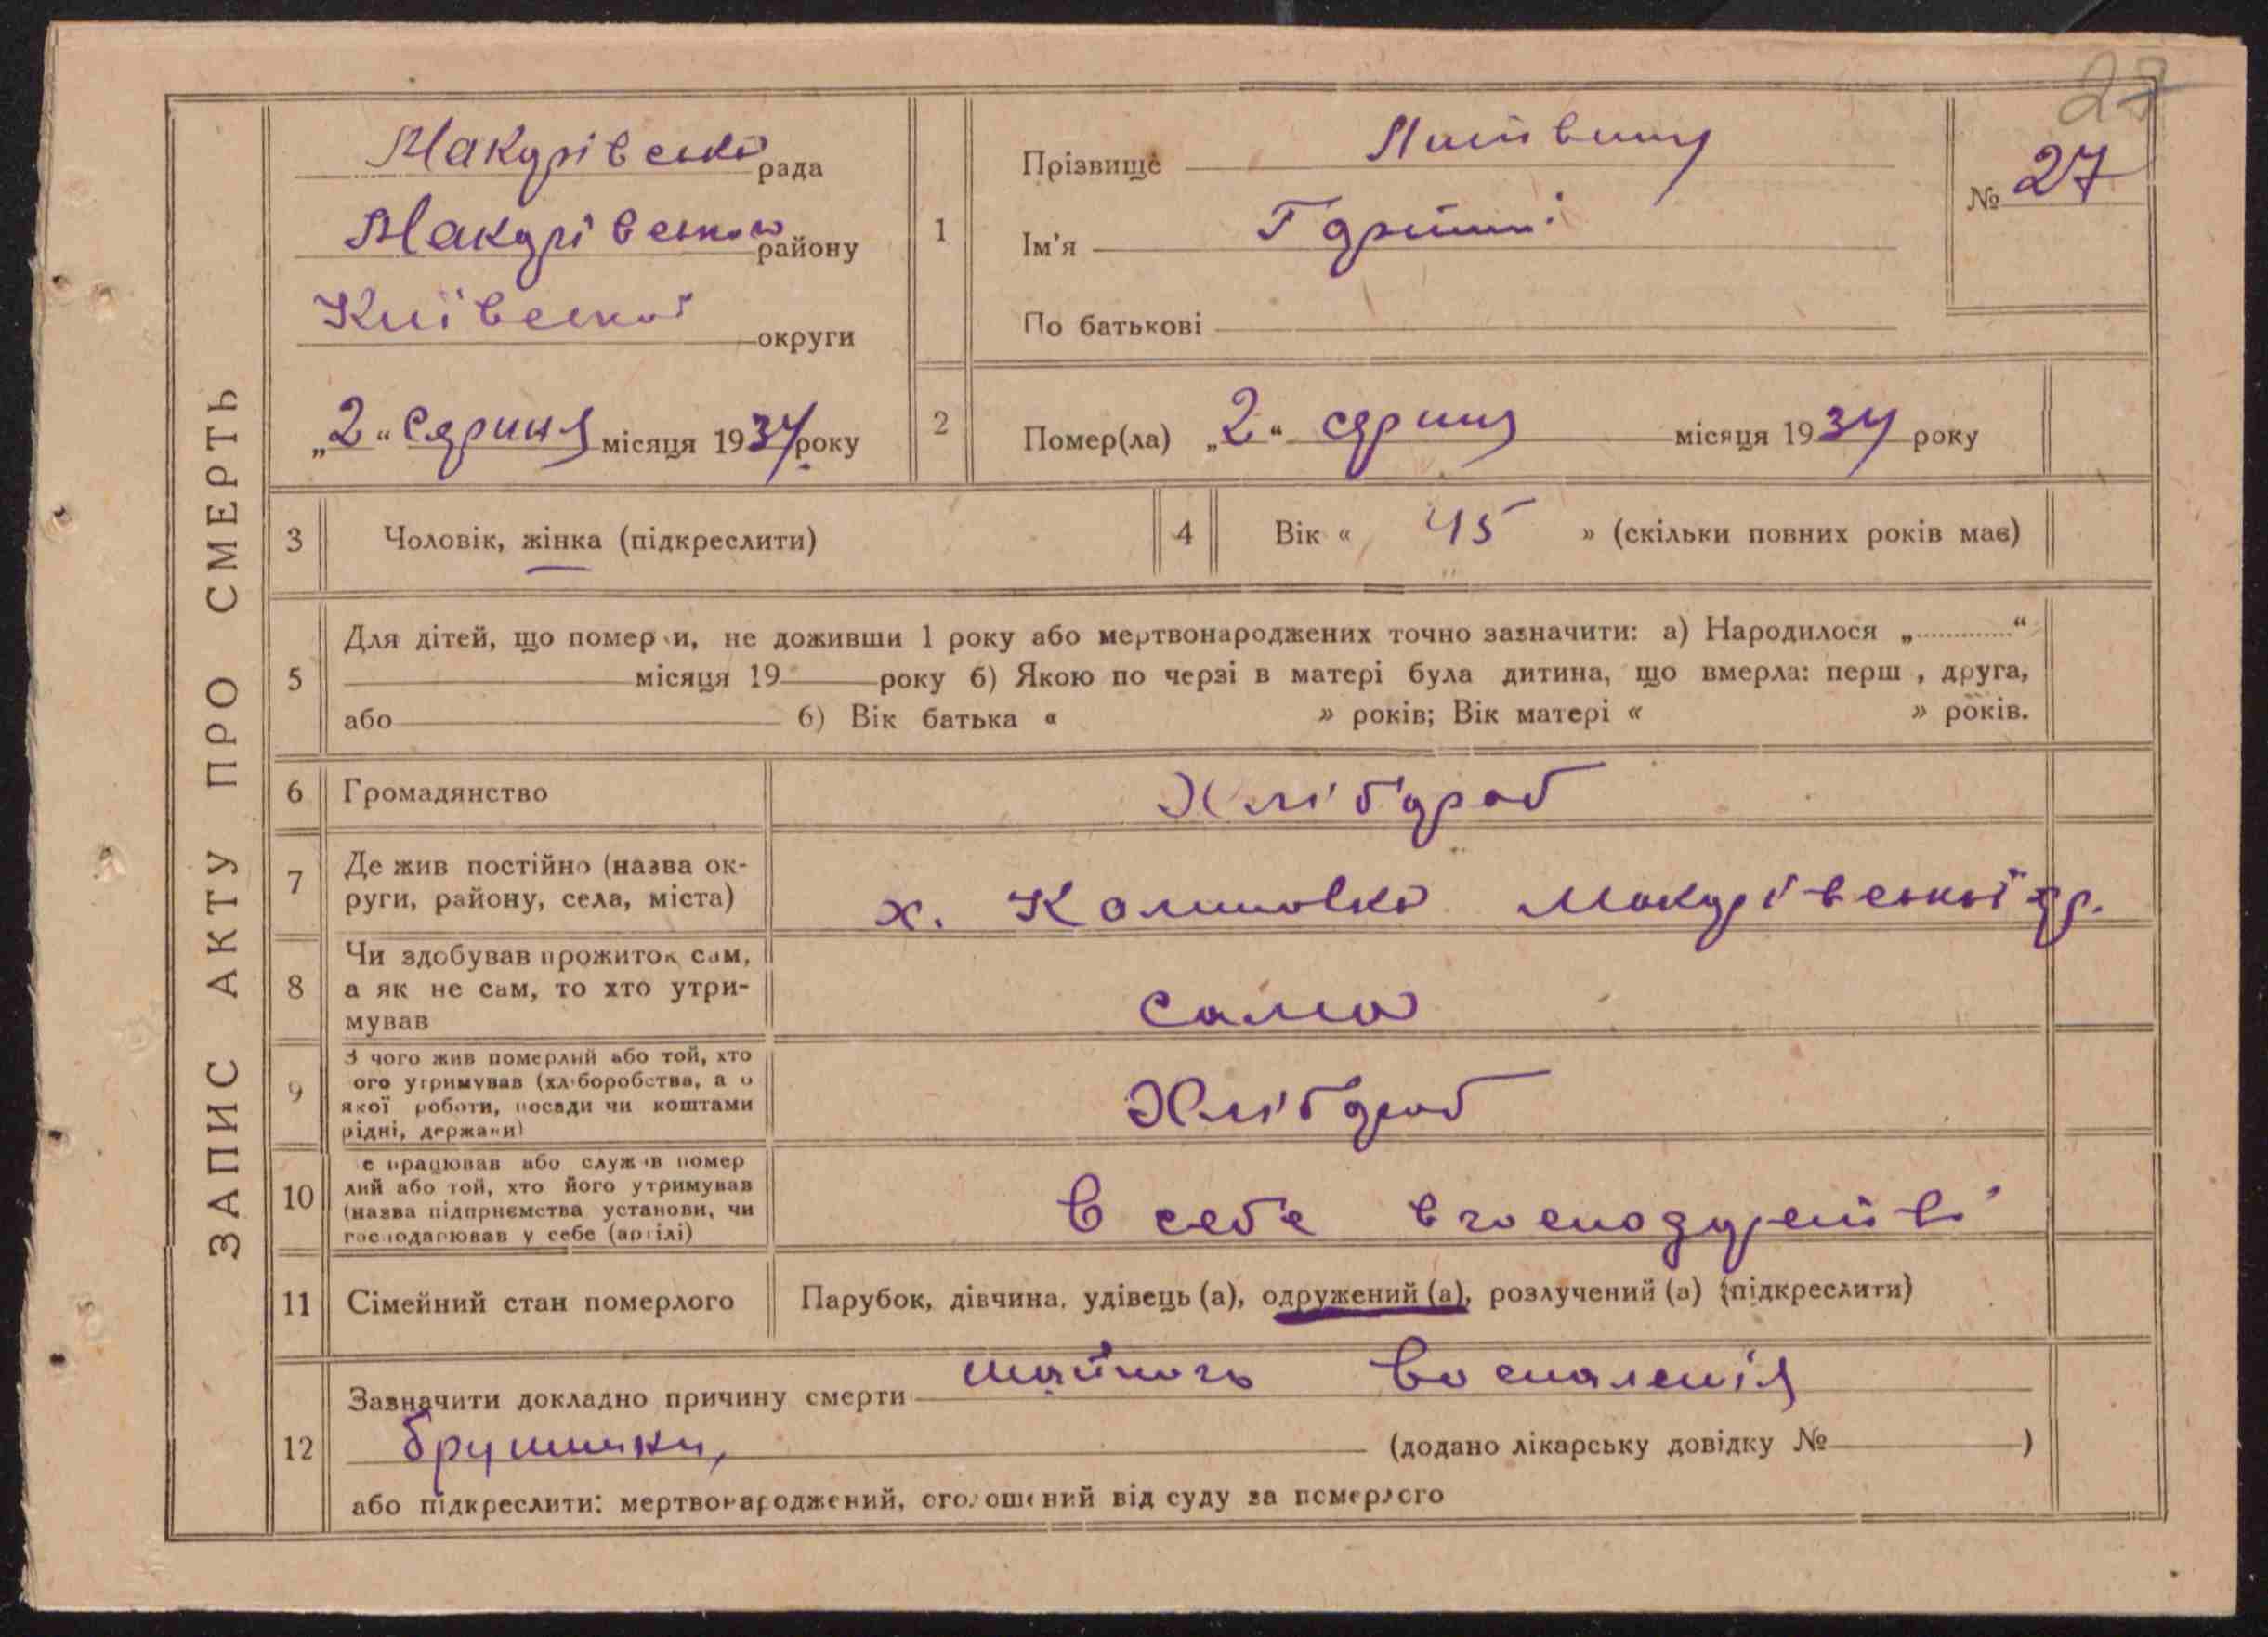 27
ЗАПИС АКТУ ПРО СМЕРТЬ
Макурівська рада
Макурівського району
Київської округи
„2“ Серпня місяця 1934 року
1
Прізвище
Ім'я
По батькові
№ 27
2
Помер(ла) „2“ серпня місяця 1934 року
3 Чоловік, жінка (підкреслити)
4 Вік « 45 » (скільки повних років має)
5
Для дітей, що помер и, не доживши 1 року або мертвонароджених точно зазначити: а) Народилося „ “
місяця 19 року б) Якою по черзі в матері була дитина, що вмерла: перш , друга,
або б) Вік батька « » років; Вік матері « » років.
6 Громадянство Хлібороб
7
Де жив постійно (назва ок-
руги, району, села, міста)
х. Калиновка Макурівської
8
Чи здобував прожиток сам,
а як не сам, то хто утри-
мував
сама
9
З чого жив померлий або той, хто
ого утримував (хліборобства, а о
якої роботи, посади чи коштами
рідні, держави)
Хлібороб
10
е працював або служив помер
лий або той, хто його утримував
(назва підприємства установи, чи
господарював у себе (артілі)
в себе в господарстві
11 Сімейний стан померлого Парубок, дівчина, удівець (а), одружений (а), розлучений (а) (підкреслити)
12
Зазначити докладно причину смерти воспаленія
(додано лікарську довідку № )
або підкреслити: мертвонароджений, оголошений від суду за померлого